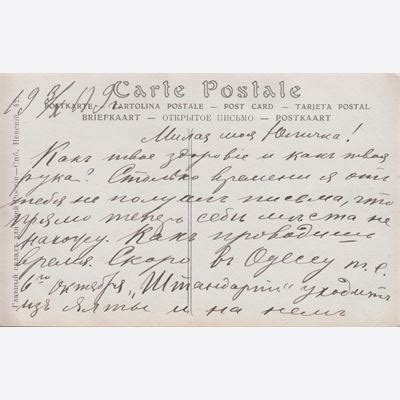 19 3/X 09 г.
Carte Postale
POSTKARTE — CARTOLINA POSTALE — POST CARD — TARJETA POSTAL
BRIEFKAART — ОТКРЫТОЕ ПИСЬМО — POSTKAART
Милая моя Юличка!
Какъ твое здоровіе и какъ твоя
рука? Столько времени я отъ
тебя не получалъ письма, что
прямо теперь себѣ мѣста не
нахожу. Какъ проводишь
время. Скоро въ Одессу т. е.
6го октября „Штандартъ" уходитъ
изъ Ялты и на немъ
Главный складъ для
Спб. Невскій